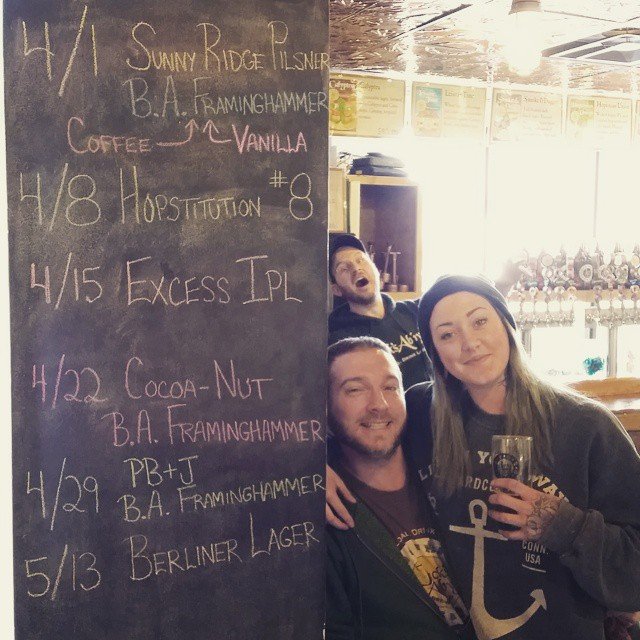 4/1 SUNNY RIDGE PILSNER
B.A. FRAMINGHAMMER
COFFEE VANILLA
4/8 HOPSTITUTION #8
4/15 EXCESS IPL
4/22 COCOA-NUT
B.A. FRAMINGHAMMER
4/29 PB+J
B.A. FRAMINGHAMMER
5/13 BERLINER LAGER
CONN.
USA